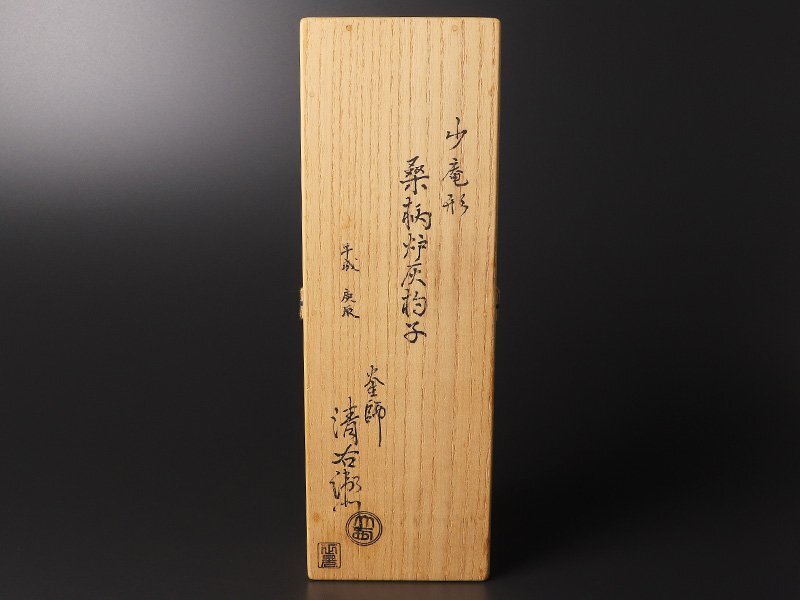 少庵形
桑柄炉灰杓子
平成 庚辰
釜師
清右衛門